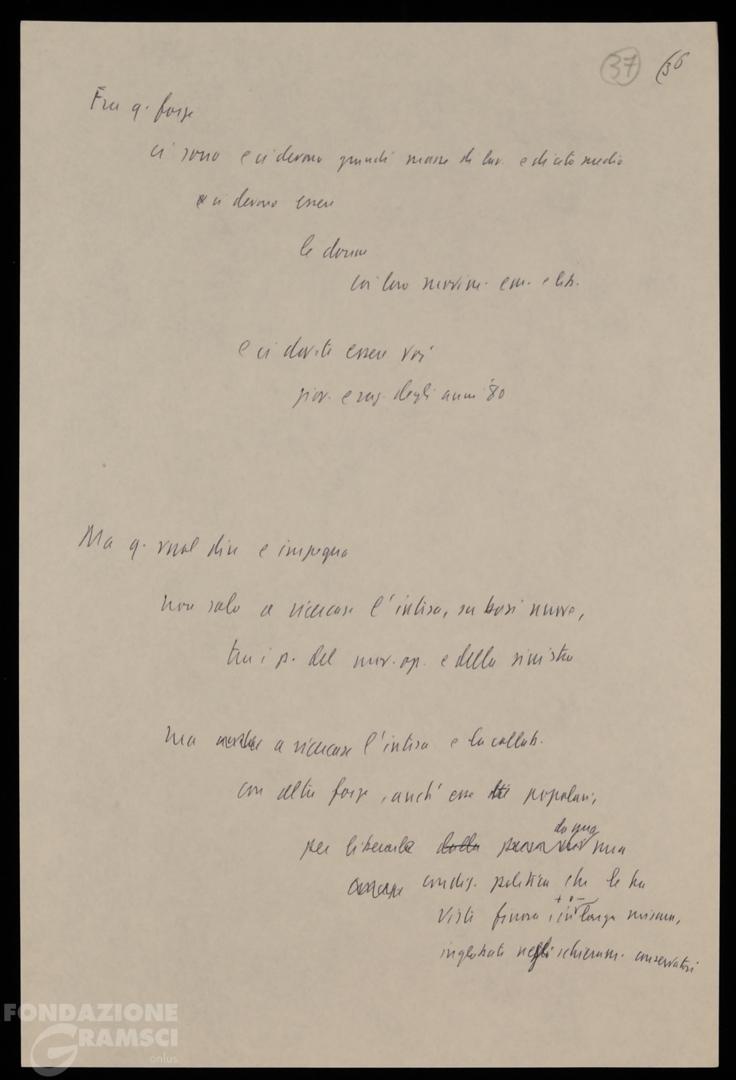 37 36
Fra q. forze
ci sono e ci devono grandi masse di lav. e di ceto medio
e ci devono essere
le donne
coi loro movim. em. e lib.
e ci dovete essere voi
giov. e rag. degli anni '80
Ma q. vuol dire e impegna
non solo a ricercare l'intesa, su basi nuove,
tra i p. del mov. op. e della sinistra
ma anche a ricercare l'intesa e la collab.
con altre forze, anch'esse popolari,
da una
per liberarle dalla
condiz. politica che le ha
+ o -
viste finora, in larga misura,
inglobate negli schieram. conservatori
FONDAZIONE
GRAMSCI
onlus